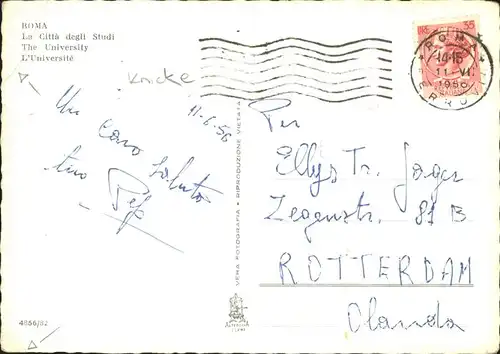 ROMA
La Città degli Studi
The University
L'Université
Knicke
11-6-56
Un
caro saluto
tuo Pep
VERA FOTOGRAFIA - RIPRODUZIONE VIETATA
4856/82
LIRE 35
ROMA
14-15
11-VI
1956
FERROVIA
Per
Ellys Tr. Jager
Zeegenstr. 81 B
ROTTERDAM
Olanda